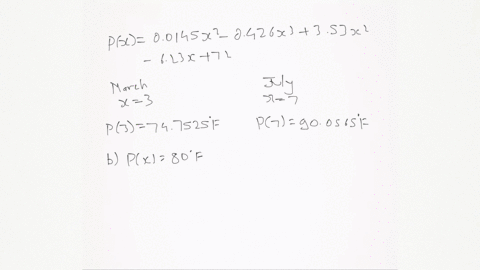 P(x)= 0.0145x⁴- 0.426x³ + 3.53x²
- 6.23x+72
March July
x=3 x=7
P(3)=74.7525°F P(7)=90.0565°F
b) P(x)=80°F